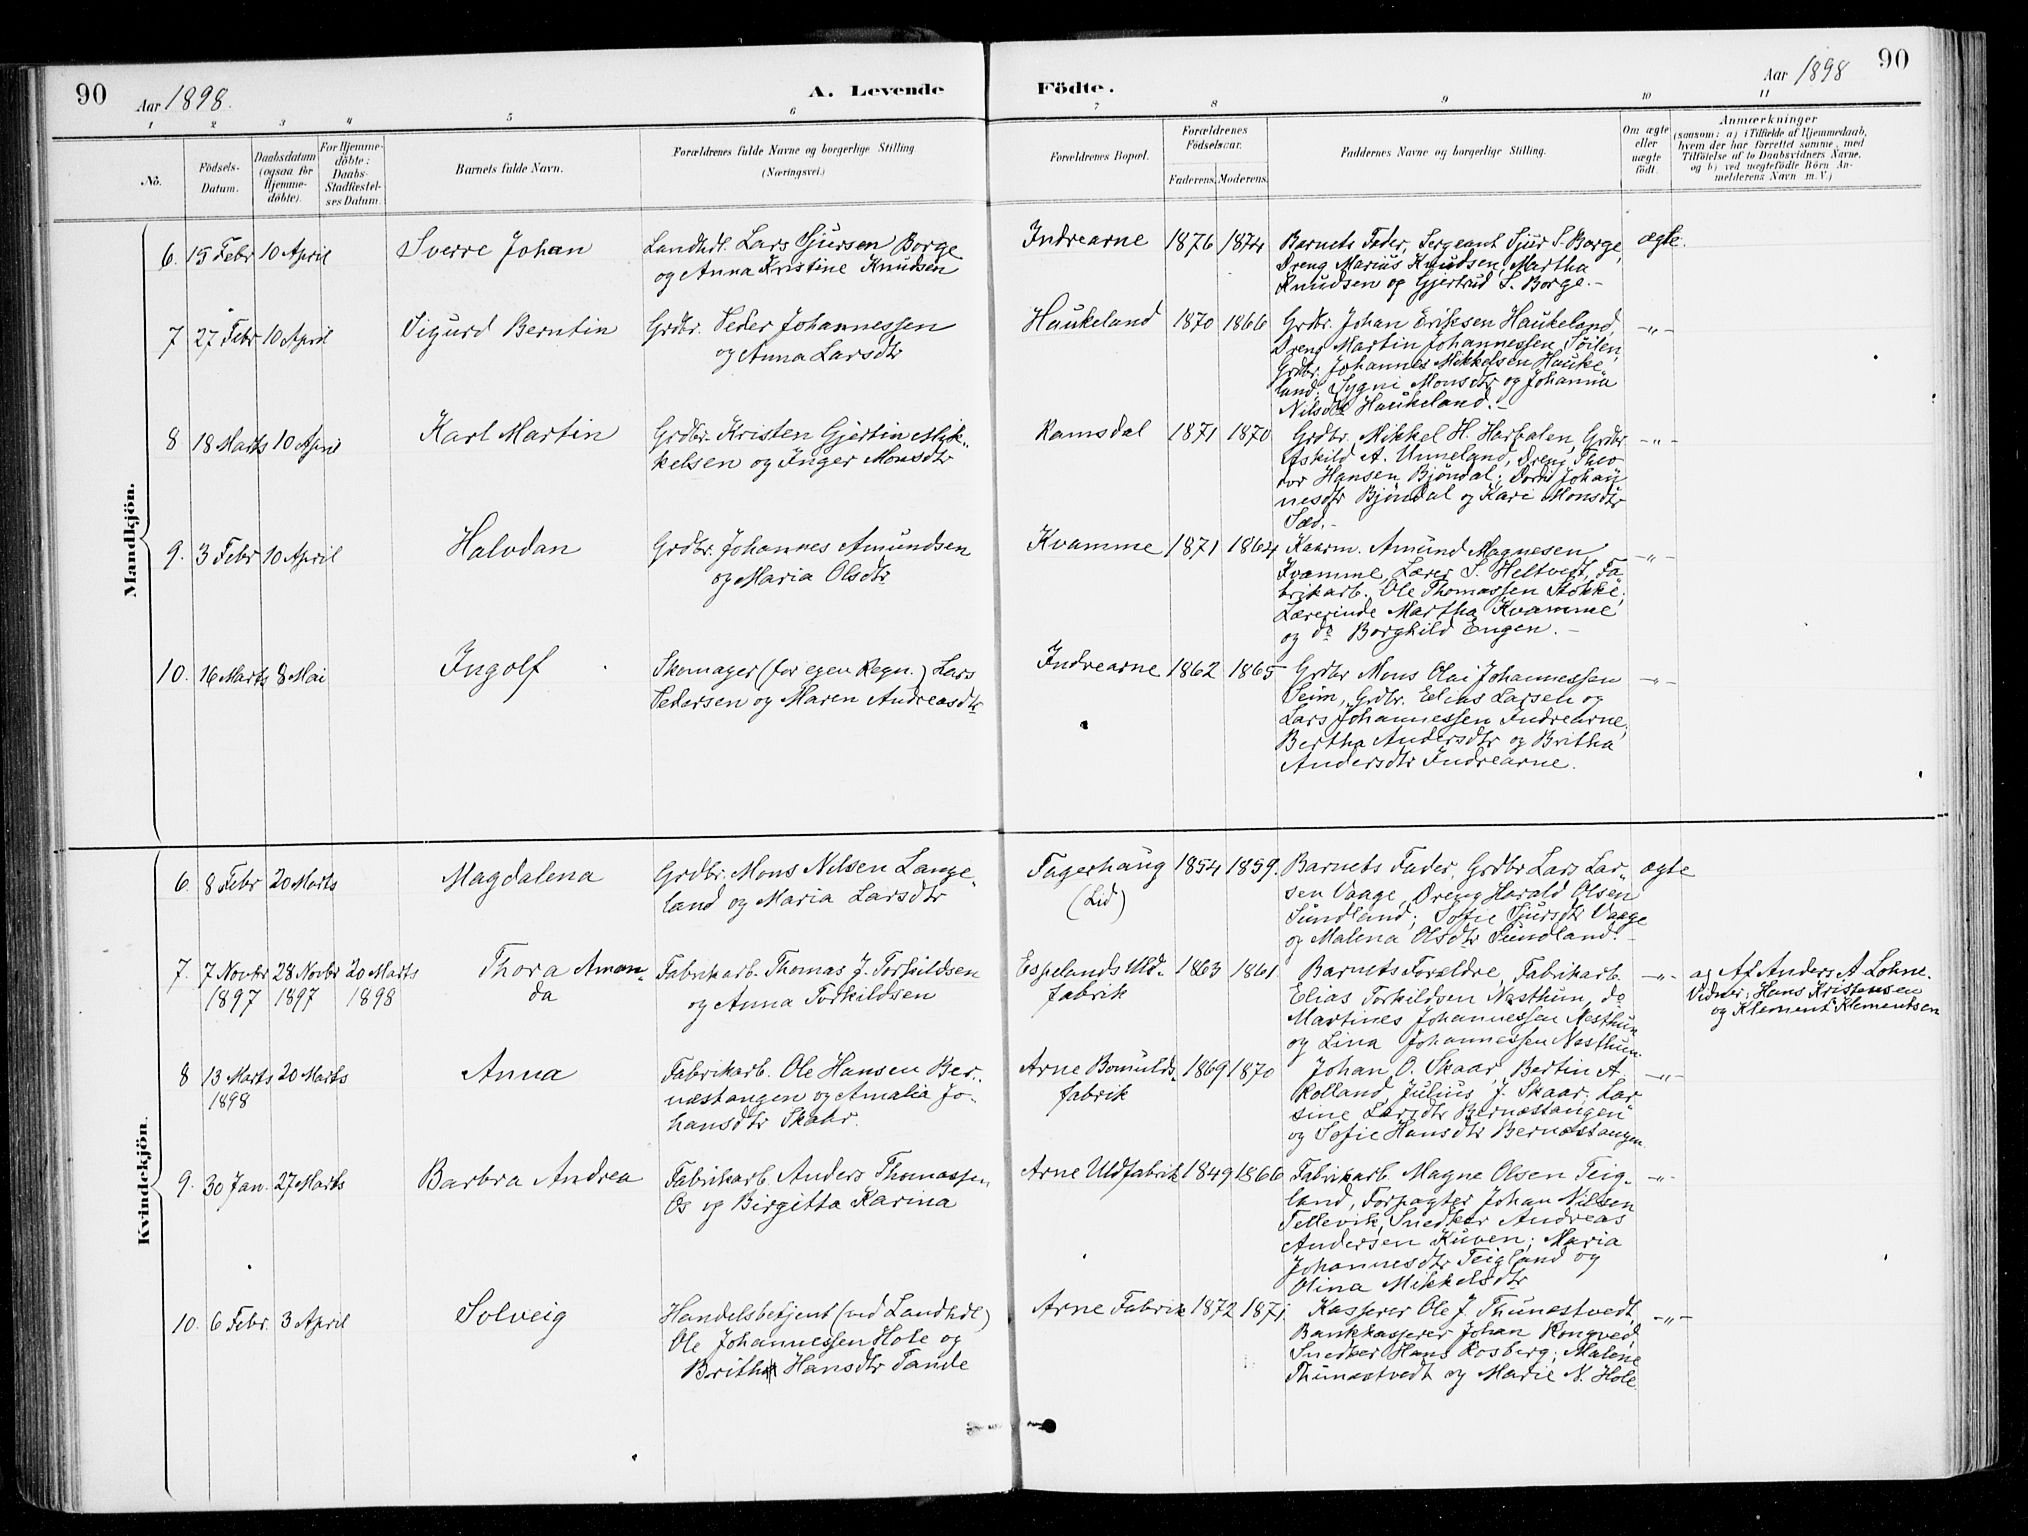 90
Aar 1898.
A. Levende
Födte.
Aar 1898
90
1
2
3
4
5
6
7
8
9
10
11
No.
Födsels-
Datum.
Daabsdatum
(ogsaa for
Hjemme-
döbte).
For Hjemme-
döbte:
Daabs-
Stadfæstel-
ses Datum.
Barnets fulde Navn.
Forældrenes fulde Navne og borgerlige Stilling
(Næringsvei.)
Forældrenes Bopæl.
Forældrenes
Födselsaar.
Faderens.
Moderens.
Faddernes Navne og borgerlige Stilling.
Om ægte
eller
uægte
födt.
Anmærkninger
(saasom: a) i Tilfælde af Hjemmedaab,
hvem der har forrettet samme, med
Tilföielse af to Daabsvidners Navne,
og b) ved uægtefödte Börn An-
melderens Navn m. V.)
Mandkjön.
6. 15 Febr 10 April
Sverre Johan
Landhdl. Lars Sjursen Borge
og Anna Kristine Knudsen
Indrearne
1876 1874
Barnets Fader, Sergeant Sjur S. Borge,
Dreng Marius Knudsen, Martha
Knudsen og Gjertrud S. Borge.-
ægte.
7 27 Febr 10 April
Sigurd Berntin
Grdbr. Peder Johannessen
og Anna Larsdtr
Haukeland
1870 1866
Grdbr. Johan Eriksen Haukeland,
Dreng Martin Johannessen, Söilen,
Grdbr. Johannes Mikkelsen Hauke-
land; Sygni Monsdtr og Johanna
Nilsdtr Haukeland.-
-"-
8 18 Marts 10 April
Karl Martin
Grdbr. Kristen Gjertin Myk-
kelsen og Inger Monsdtr
Ramsdal
1871 1870
Grdbr. Mikkel H. Harfalen, Grdbr.
Askild A. Unneland, Dreng Theo-
dor Hansen Bjöndal; Dortis Johan-
nesdtr Bjöndal og Kari Monsdtr
Sæd.-
-"-
9. 3 Febr 10 April
Halvdan
Grdbr. Johannes Amundsen
og Maria Olsdtr
Kvamme
1871 1864
Kaarm. Amund Magnesen
Kvamme, Lærer S. Heltvedt, Fa-
brikarb. Ole Thomassen Stokke;
Lærerinde Martha Kvamme
og do Borghild Engen.-
-"-
10. 16 Marts 8 Mai
Ingolf
Skomager (for egen Regn.) Lars
Pedersen og Maren Andreasdtr
Indrearne
1862 1865
Grdbr Mons Olai Johannessen
Seim, Grdbr. Elias Larsen og
Lars Johannessen Indrearne;
Bertha Andersdtr og Britha
Andersdtr Indrearne.
-"-
Kvindekjön.
6. 8 Febr 20 Marts
Magdalena
Grdbr. Mons Nilsen Lange-
land og Maria Larsdtr
Fagerhaug
(Lid)
1854 1859.
Barnets Fader, Grdbr Lars Lar-
sen Vaage, Dreng Harald Olsen
Sundland; Sofie Sjursdtr Vaage
og Malena Olsdtr Sundland.-
ægte
7. 7 Novbr 28 Novbr 20 Marts
1897 1897 1898
Thora Aman-
da
Fabrikarb. Thomas J. Torkildsen
og Anna Torkildsen
Espelands Uld-
fabrik
1863 1861
Barnets Forældre, Fabrikarb.
Elias Torkildsen Nesthun, do
Martines Johannessen Nesthun
og Lina Johannessen Nesthun.
-"-
a) Af Anders A. Lohne.
Vidner: Hans Kristensen
og Klement Klementsen
8 13 Marts 20 Marts
1898
Anna
Fabrikarb. Ole Hansen Ber-
næstangen og Amalia Jo-
hansdtr Skaar.
Arne Bomulds-
fabrik
1869 1870
Johan O. Skaar, Bertin A.
Rolland, Julius J. Skaar; Lar-
sine Larsdtr Bernæstangen
og Sofie Hansdtr Bernæstangen
-"-
9. 30 Jan. 27 Marts
Barbra Andrea
Fabrikarb. Anders Thomassen
Os og Birgitta Karina
Arne Uldfabrik
1849 1866
Fabrikarb. Magne Olsen Teig-
land, Forpagter Johan Nilsen
Tellevik, Snedker Andreas
Andersen Kuven; Maria
Johannesdtr Teigland og
Olina Mikkelsdtr
-"-
10. 6 Febr. 3 April
Solveig
Handelsbetjent (ved Landhdl)
Ole Johannessen Hole og
Britha Hansdtr Tande
Arne Fabrik
1872 1871.
Kasserer Ole J. Thunæstvedt,
Bankkasserer Johan Rongved,
Snedker Hans Rosberg; Malene
Thunæstvedt og Marie N. Hole
-"-